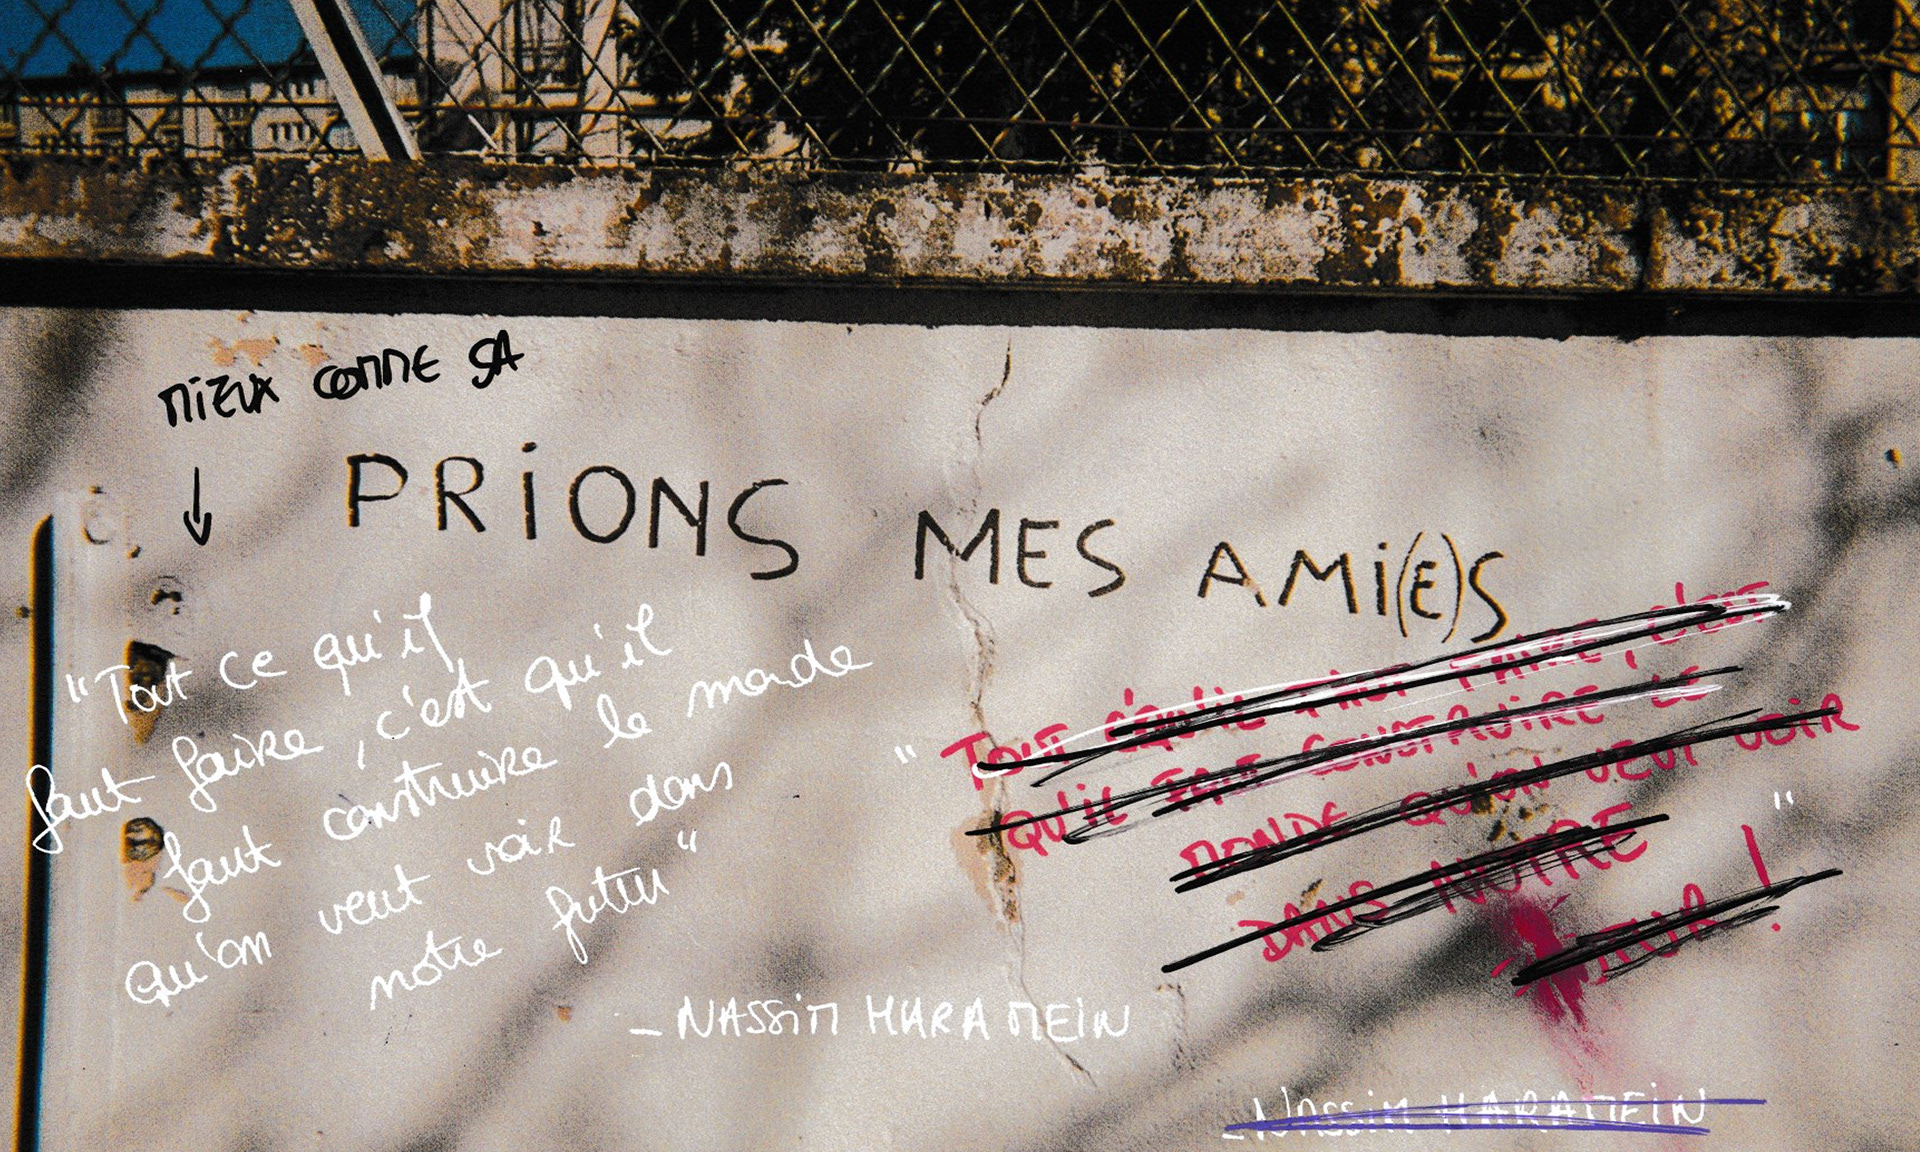 MIEUX COMME SA
PRiONS MES AMi(E)S
"Tout ce qu'il
faut faire, c'est qu'il
faut construire le monde
qu'on veut voir dans
notre futur"
- NASSiM HARAMEiN
"TOUT CE QU'IL FAUT FAIRE, C'EST
QU'IL FAUT CONSTRUIRE LE
MONDE QU'ON VEUT VOIR
DANS NOTRE
!"
- NASSiM HARAMEiN